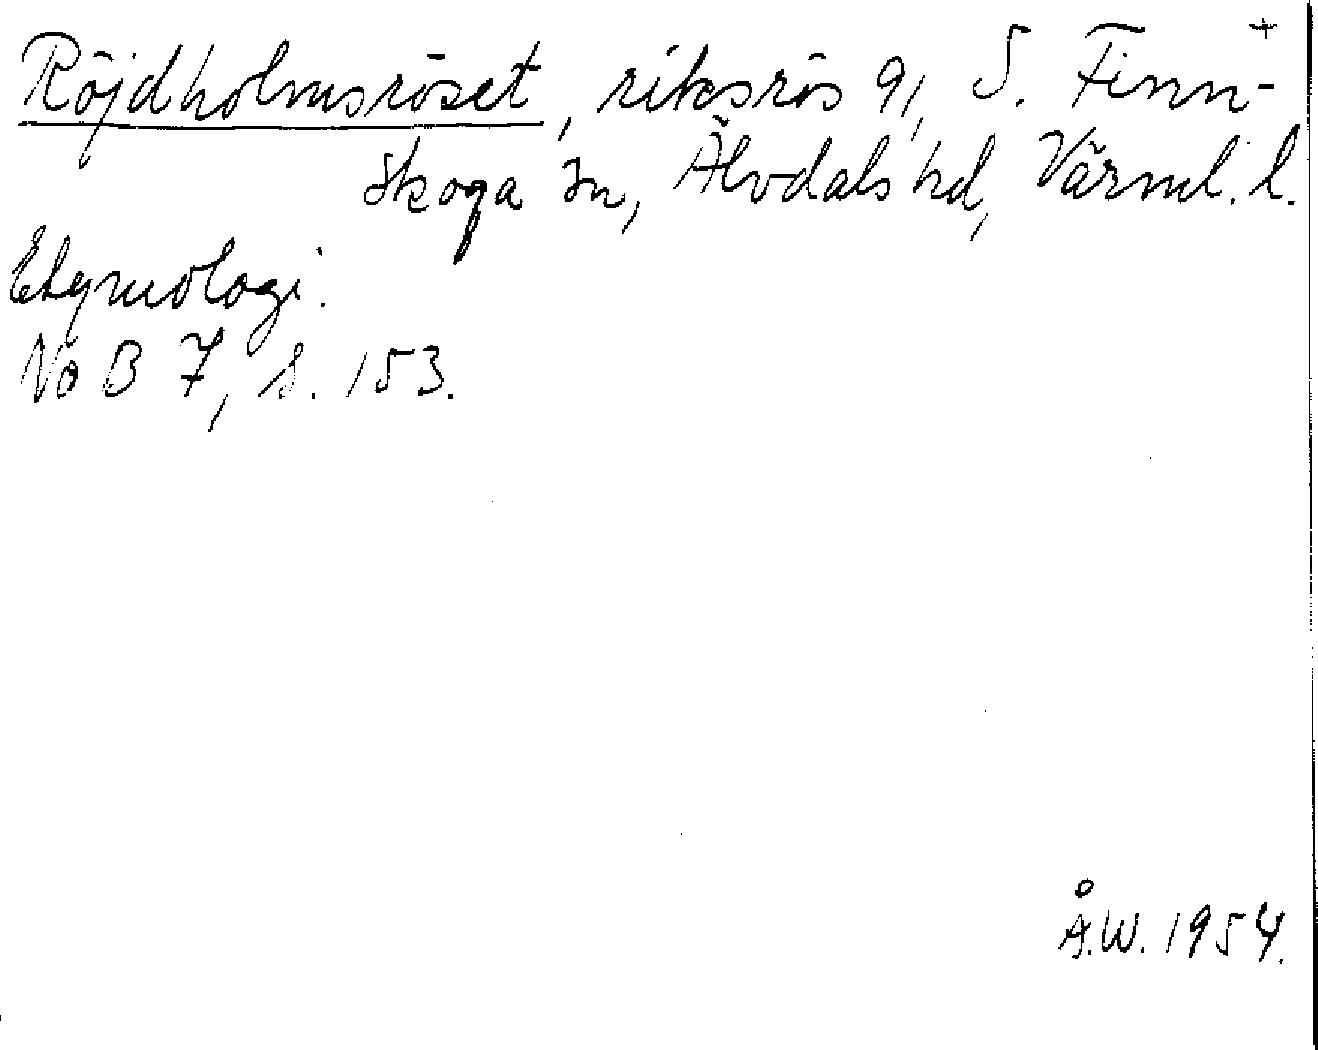 Röjdholmsröset, riksrös 91, S. Finn- +
skoga sn, Älvdals hd, Värml. l.
Etymologi.
NoB 7, s. 153.
Å.W. 1954.